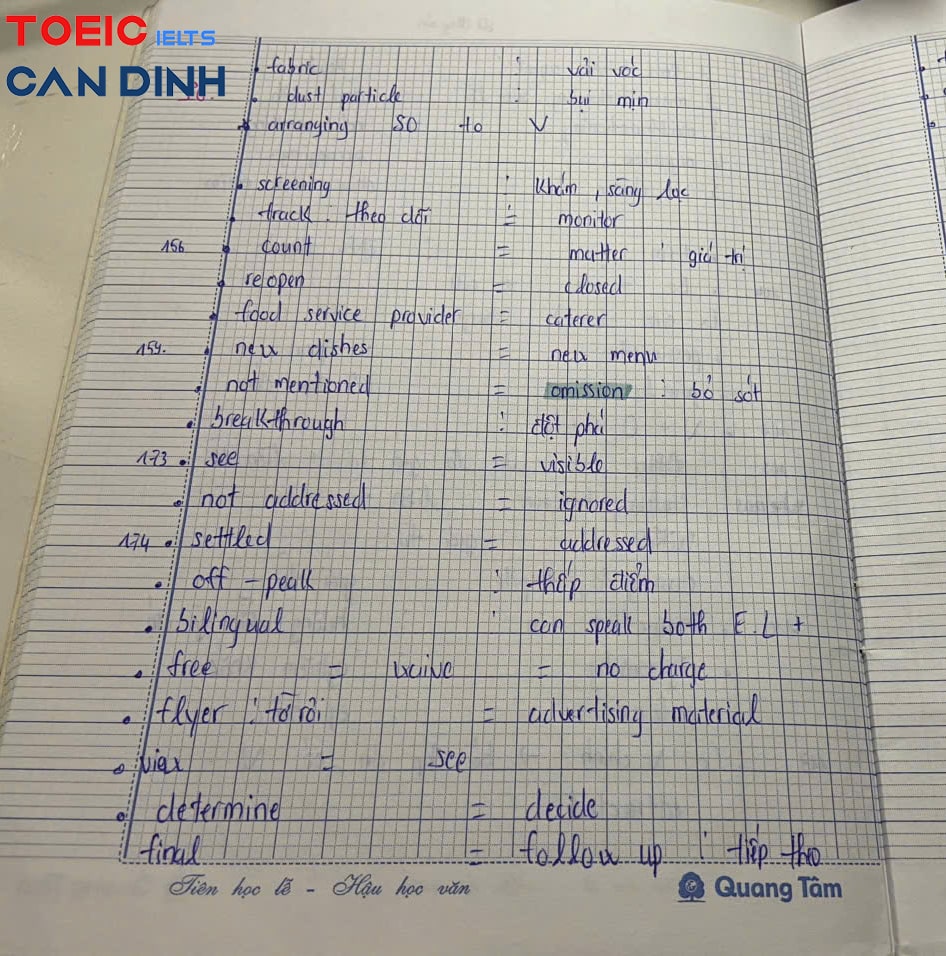 TOEIC IELTS
CAN DINH
fabric : vải vóc
dust particle : bụi mịn
arranging SO to V
screening : khám, sàng lọc
track. theo dõi = monitor
156 count = matter : giá trị
reopen = closed
food service provider = caterer
159. new dishes = new menu
not mentioned = omission : bỏ sót
breakthrough : đột phá
173 see = visible
not addressed = ignored
174 settled = addressed
off - peak : thấp điểm
bilingual : can speak both E.L +
free = waive = no charge
flyer : tờ rơi = advertising material
view = see
determine = decide
final = follow up : tiếp theo
Tiên học lễ - Hậu học văn
Quang Tâm